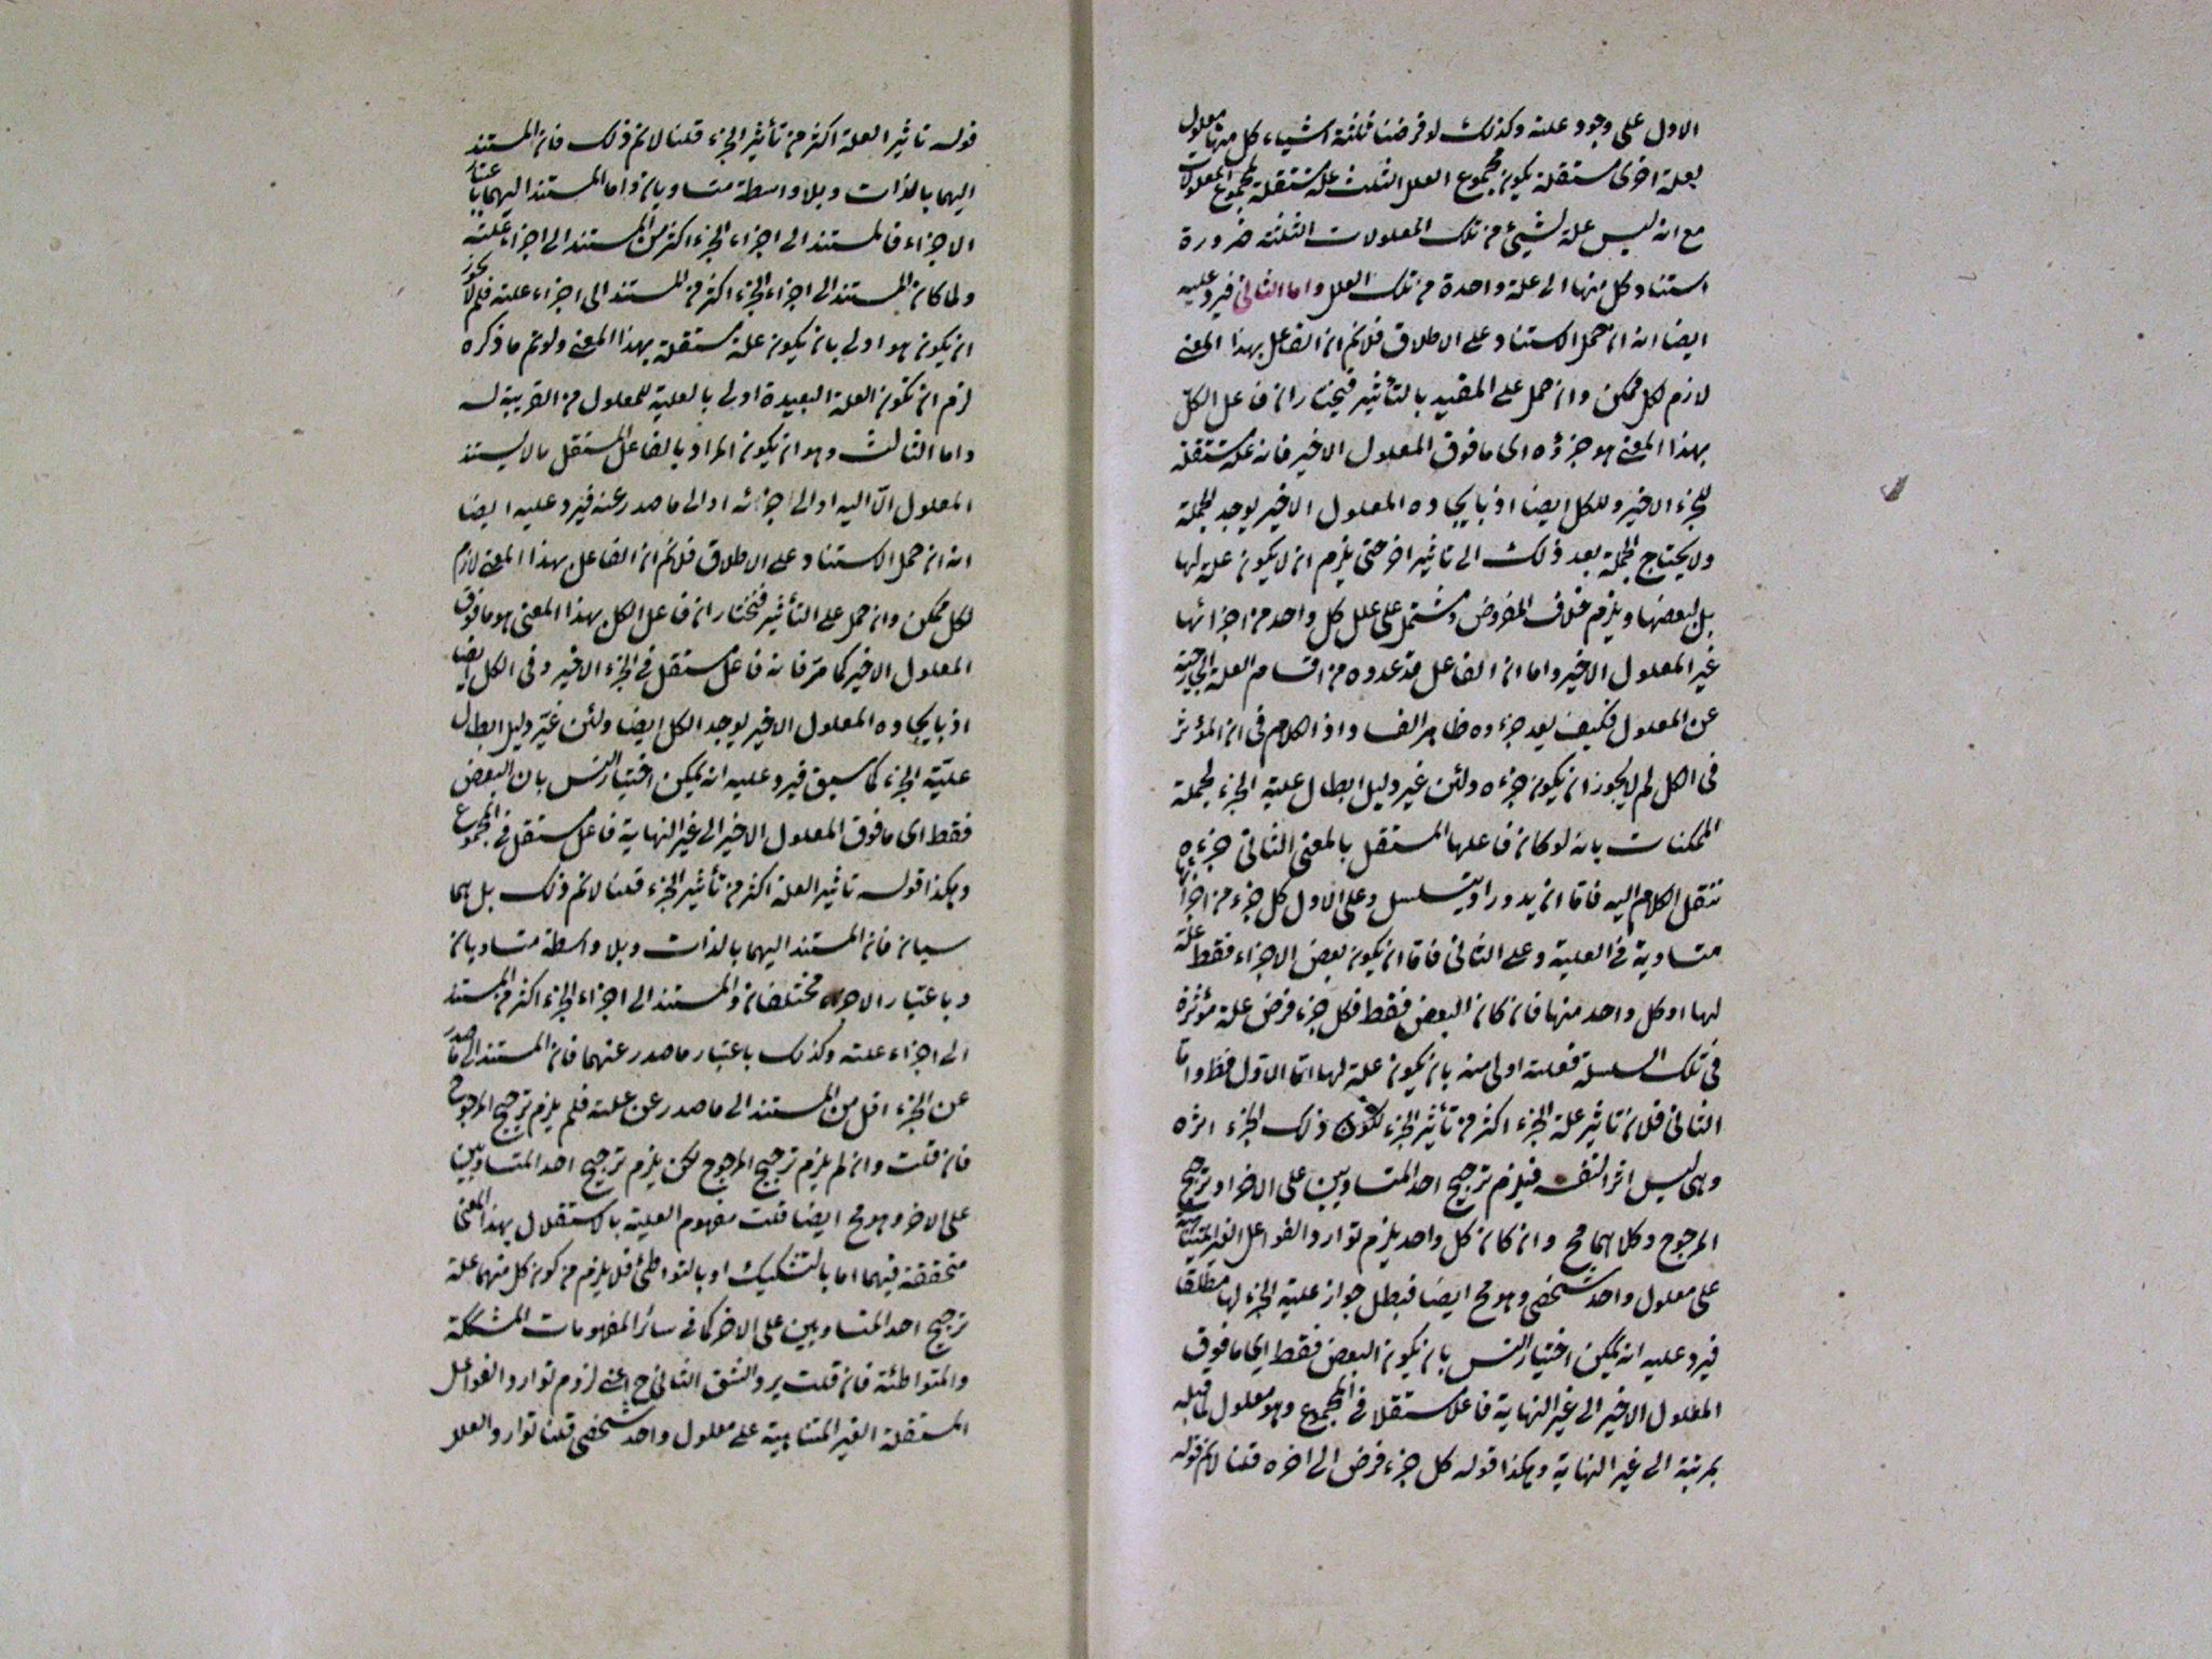 الاول على وجود علته وكذلك لو فرضنا ثلثة اشياء كل منها معلول
بعلة اخرى مستقلة يكون مجموع العلل الثلث علة مستقلة لمجموع المعلولات
مع انه ليس علة لشيئ من تلك المعلولات الثلثة ضرورة
استناد كل منها الى علة واحدة من تلك العلل واما الثانى فيرد عليه
ايضا انه ان حمل الاستناد على الاطلاق فلانم ان الفاعل بهذا المعنى
لازم لكل ممكن وان حمل على المقيد بالتأثير فيختار ان فاعل الكل
بهذا المعنى هو جزؤه اى ما فوق المعلول الاخير فانه علة مستقلة
للجزء الاخير وللكل ايضا اذ بايجاده المعلول الاخير يوجد الجملة
ولا يحتاج الجملة بعد ذلك الى تاثير اخر حتى يلزم ان لا يكون علة لها
بل لبعضها ويلزم خلاف المفروض ومشتمل على علل كل واحد من اجزائها
غير المعلول الاخير واما ان الفاعل قد عدوه من اقسام العلة الخارجية
عن المعلول فكيف يعد جزءه ظاهر الفساد اذ الكلام فى ان المؤثر
فى الكل لم لا يجوز ان يكون جزءه ولئن غير دليل ابطال علية الجزء لجملة
الممكنات بانه لو كان فاعلها المستقل بالمعنى الثانى جزءه
ننقل الكلام اليه فاما ان يدور او يتسلسل وعلى الاول كل جزء من اجزائها
متساوية فى العلية وعلى الثانى فاما ان يكون بعض الاجزاء فقط علة
لها او كل واحد منها فان كان البعض فقط فكل جزء فرض علة مؤثرة
فى تلك السلسلة فعلته اولى منه بان يكون علة لها اما الاول فظ واما
الثانى فلان تاثير علة الجزء اكثر من تأثير الجزء لكون ذلك الجزء اثره
وهى ليس اثر النفسه فيلزم ترجيح احد المتساويين على الاخر او ترجيح
المرجوح وكلاهما مح وان كان كل واحد يلزم توارد الفواعل الغير المتناهية
على معلول واحد شخصى وهو مح ايضا فبطل جواز علية الجزء لها مطلقا
فيرد عليه انه يمكن اختيار التس بان يكون البعض فقط اى ما فوق
المعلول الاخير الى غير النهاية فاعلا مستقلا فى المجموع وهو معلول لما قبله
بمرتبة الى غير النهاية وهكذا قوله كل جزء فرض الى اخره قلنا لانم قوله
قوله تاثير العلة اكثر من تأثير الجزء قلنا لانم ذلك فان المستند
اليهما بالذات وبلا واسطة متساويان واما المستند اليهما باعتبار
الاجزاء فالمستند الى اجزاء الجزء اكثر من المستند الى اجزاء علته
ولما كان المستند الى اجزاء الجزء اكثر من المستند الى اجزاء علته فلم لا يجوز
ان يكون هو اولى بان يكون علة مستقلة بهذا المعنى ولو تم ما ذكره
لزم ان تكون العلة البعيدة اولى بالعلية للمعلول من القريبة له
واما الثالث وهو ان يكون المراد بالفاعل المستقل ما لا يستند
المعلول الا اليه او الى اجزائه او الى ما صدر عنه فيرد عليه ايضا
انه ان حمل الاستناد على الاطلاق فلانم ان الفاعل بهذا المعنى لازم
لكل ممكن وان حمل على التأثير فنختار ان فاعل الكل بهذا المعنى هو ما فوق
المعلول الاخير كما مر فانه فاعل مستقل فى الجزء الاخير وفى الكل ايضا
اذ بايجاده المعلول الاخير يوجد الكل ايضا ولئن غير دليل ابطال
علية الجزء كما سبق فيرد عليه انه يمكن اختيار التس بان البعض
فقط اى ما فوق المعلول الاخير الى غير النهاية فاعل مستقل فى المجموع
وهكذا قوله تاثير العلة اكثر من تأثير الجزء قلنا لانم ذلك بل هما
سيان فان المستند اليهما بالذات وبلا واسطة متساويان
وباعتبار الاجزاء مختلفان والمستند الى اجزاء الجزء اكثر من المستند
الى اجزاء علته وكذلك باعتبار ما صدر عنهما فان المستند الى ما صدر
عن الجزء اقل من المستند الى ما صدر عن علته فلم يلزم ترجيح المرجوح
فان قلت وان لم يلزم ترجيح المرجوح لكن يلزم ترجيح احد المتساويين
على الاخر وهو مح ايضا قلت مفهوم العلية بالاستقلال بهذا المعنى
متحققة فيهما اما بالتشكيك او بالتواطئ فلا يلزم من كون كل منهما علة
ترجيح احد المتساويين على الاخر كما فى سائر المفهومات المشككة
والمتواطئة فان قلت يرد الشق الثانى ح اعنى لزوم توارد الفواعل
المستقلة الغير المتناهية على معلول واحد شخصى قلنا توارد العلل